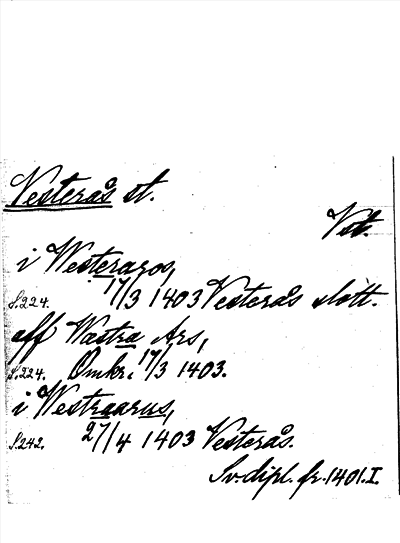 Vesterås st.
Vst.
i Westeraros,
S.224. 17/3 1403 Vesterås slott.
aff Wastra Ars,
S.224. Omkr. 17/3 1403.
i Westraarus,
S.242. 27/4 1403 Vesterås.
Sv. dipl. fr. 1401. I.